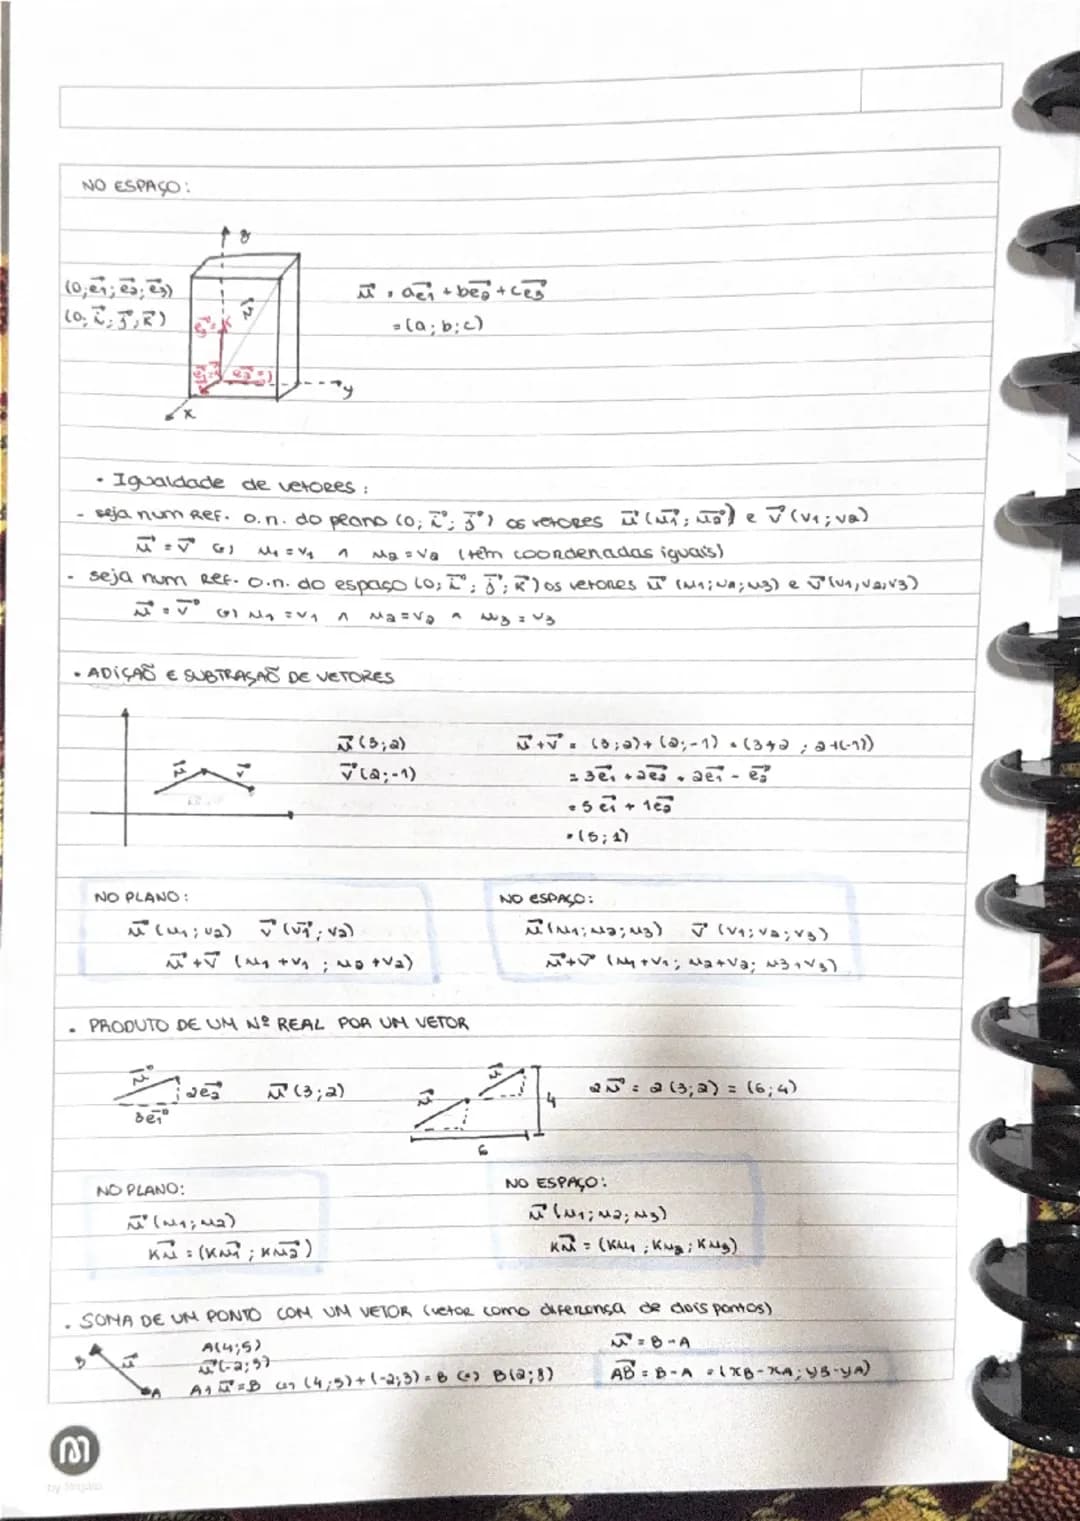 NO ESPAÇO:
z
(0; e⃗1; e⃗2; e⃗3)
(0; i⃗; j⃗; k⃗)
u⃗ = ae⃗1 + be⃗2 + ce⃗3
= (a; b; c)
u⃗
e⃗3 = k⃗
y
x
• Igualdade de vetores:
- seja num REF. o.n. do plano (0; i⃗; j⃗) os vetores u⃗ (u⃗1; u⃗2) e v⃗ (v1; v2)
u⃗ = v⃗ (=) u1 = v1 ∧ u2 = v2 (têm coordenadas iguais)
- seja num REF. o.n. do espaço (0; i⃗; j⃗; k⃗) os vetores u⃗ (u1; u2; u3) e v⃗ (v1, v2, v3)
u⃗ = v⃗ (=) u1 = v1 ∧ u2 = v2 ∧ u3 = v3
• ADIÇÃO E SUBTRAÇÃO DE VETORES
u⃗ v⃗
u⃗ (3; 2)
v⃗ (2; -1)
u⃗ + v⃗ = (3; 2) + (2; -1) = (3+2 ; 2+(-1))
= 3e⃗1 + 2e⃗2 + 2e⃗1 - e⃗2
= 5e⃗1 + 1e⃗2
= (5; 1)
NO PLANO:
u⃗ (u1; u2) v⃗ (v⃗1; v2)
u⃗ + v⃗ (u1 + v1 ; u2 + v2)
NO ESPAÇO:
u⃗ (u1; u2; u3) v⃗ (v1; v2; v3)
u⃗ + v⃗ (u1 + v1; u2 + v2; u3 + v3)
• PRODUTO DE UM Nº REAL POR UM VETOR
u⃗ 2e⃗2 3e⃗1
u⃗ (3; 2)
u⃗ u⃗ 4 6
2u⃗ = 2 (3; 2) = (6; 4)
NO PLANO:
u⃗ (u1; u2)
ku⃗ = (ku⃗1 ; ku⃗2)
NO ESPAÇO:
u⃗ (u1; u2; u3)
ku⃗ = (ku1 ; ku2 ; ku3)
• SOMA DE UM PONTO COM UM VETOR (vetor como diferença de dois pontos)
B u⃗ A
A(4; 5)
u⃗ (-2; 3)
A + u⃗ = B (=) (4; 5) + (-2; 3) = B (=) B(2; 8)
u⃗ = B - A
A⃗B = B - A = (xB - xA; yB - yA)
m